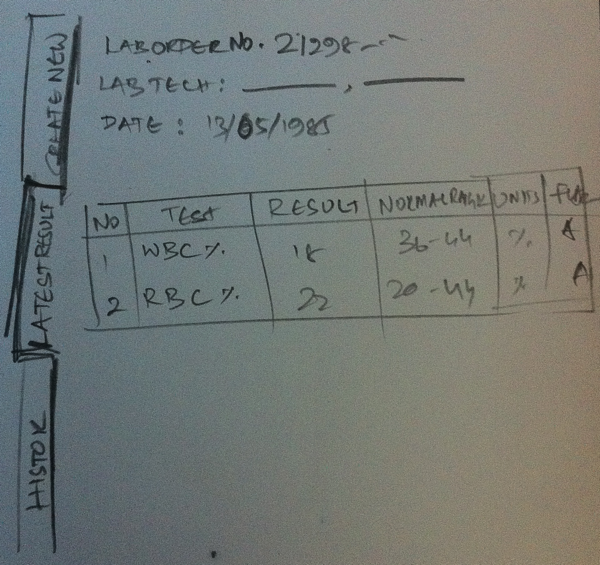 CREATE NEW
LATEST RESULT
HISTOR
LAB ORDER NO. 21298
LAB TECH: ,
DATE : 13/05/1985
NO TEST RESULT NORMAL RANGE UNITS
1 WBC % 18 36-44 % A
2 RBC % 22 20-44 % A